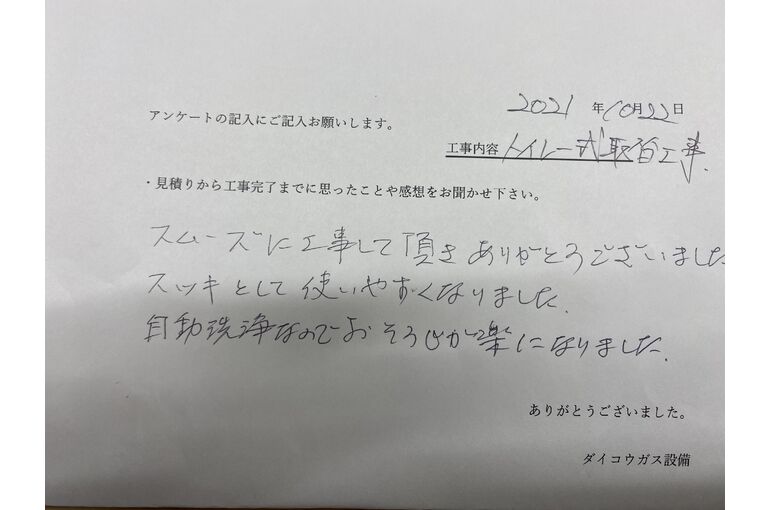 2021年10月22日
アンケートの記入にご記入お願いします。
工事内容 トイレ一式取替工事.
・見積りから工事完了までに思ったことや感想をお聞かせ下さい。
スムーズに工事して頂きありがとうございました
スッキとして使いやすくなりました.
自動洗浄なのでおそうじが楽になりました.
ありがとうございました。
ダイコウガス設備